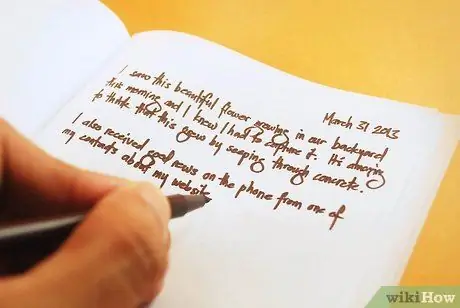 March 31 2013
I saw this beautiful flower growing in our backyard
this morning and I knew I had to capture it. It's amazing
to think that this grew by seeping through concrete.
I also received good news on the phone from one of
my contacts about my website
wikiHow